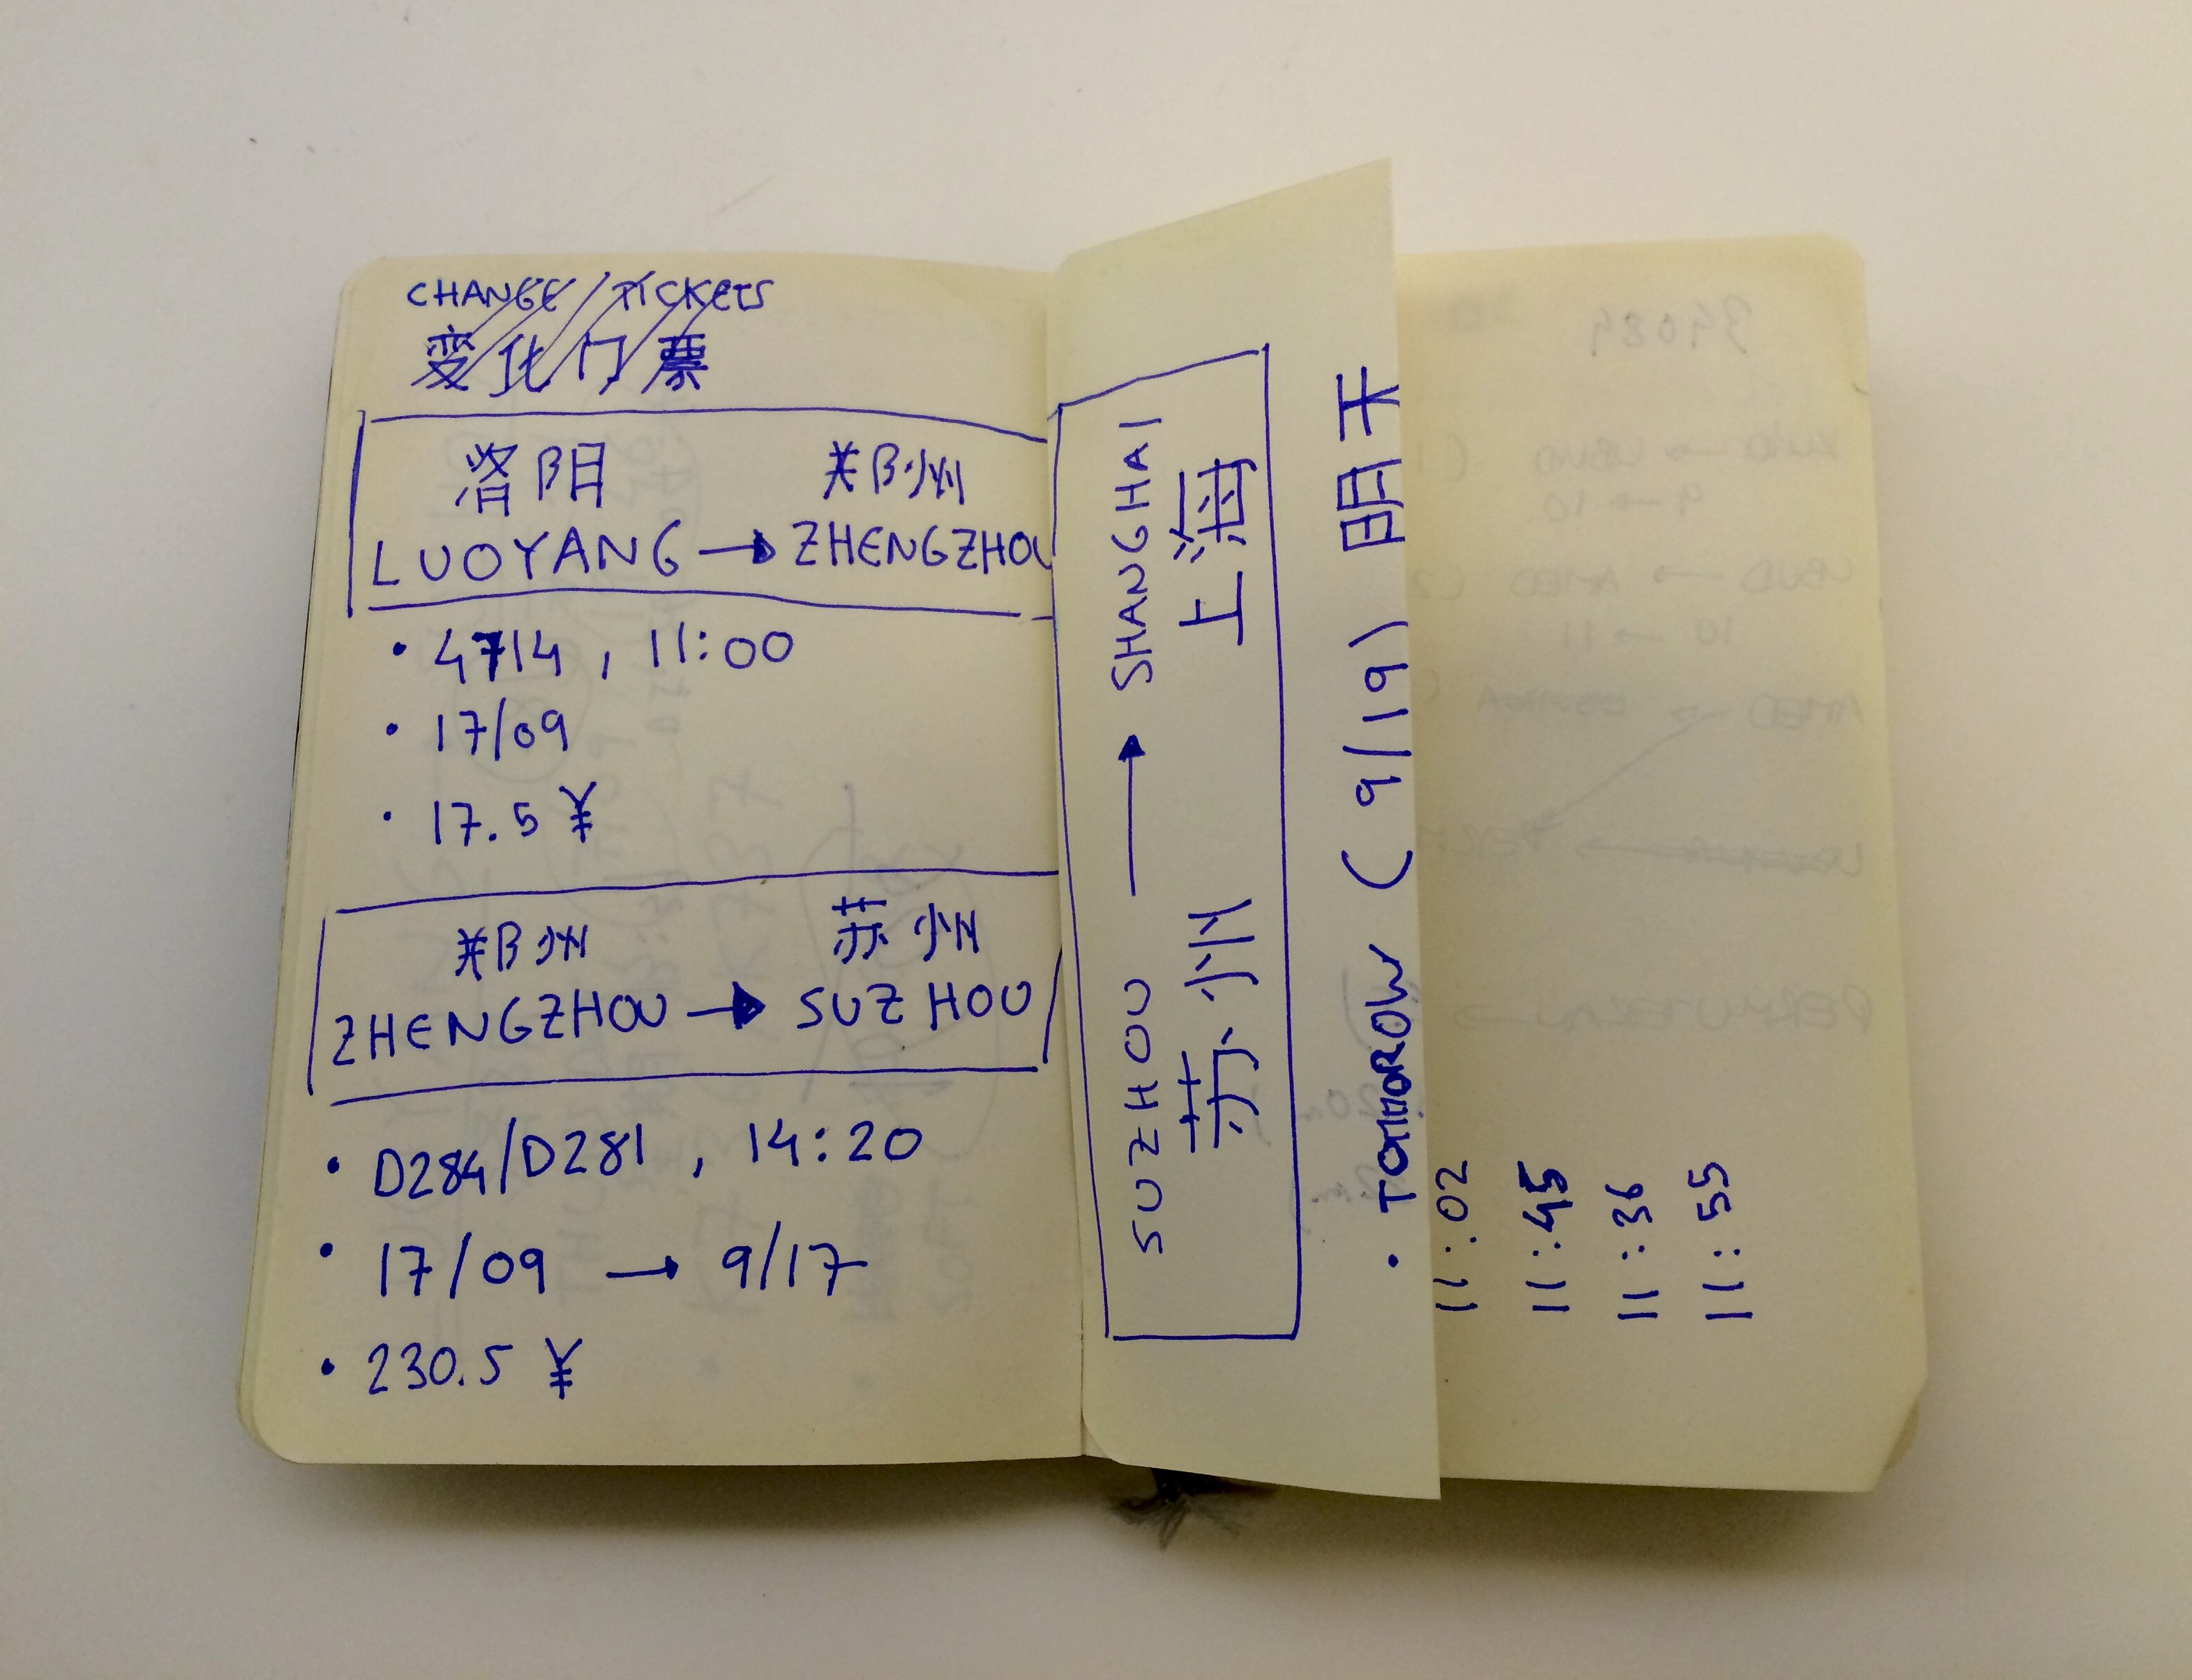 CHANGE / TICKETS
变化门票
洛阳 郑州
LUOYANG → ZHENGZHOU
• 4714, 11:00
• 17/09
• 17.5 ¥
郑州 苏州
ZHENGZHOU → SUZHOU
• D284/D281, 14:20
• 17/09 → 9/17
• 230.5 ¥
SUZHOU → SHANGHAI
苏州 上海
• TOMMOROW (9/19) 明天
11:02
11:45
11:36
11:55